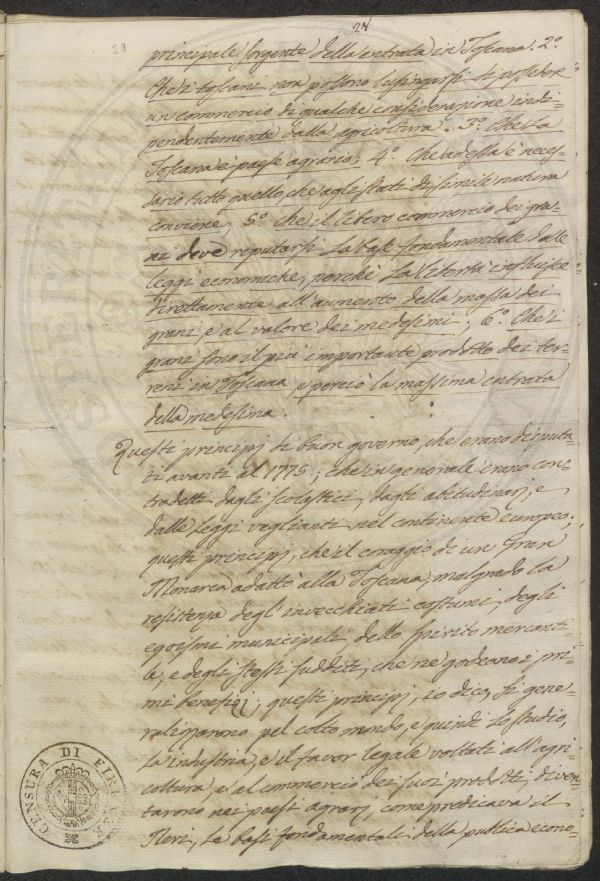 28
28
principale sorgente della entrata in Toscana. 2.º
Che i toscani non possono lusingarsi di possedere
un commercio di qualche considerazione indi-
pendentemente dalla agricoltura. 3.º Che la
Toscana è paese agrario; 4.º Che ad essa è neces-
sario tutto quello, che agli stati di simile natura
conviene; 5.º che il libero commercio dei gra-
ni deve reputarsi la base fondamentale delle
leggi economiche, perchè la libertà influisce
direttamente all'aumento della massa dei
grani, e al valore dei medesimi; 6.º Che i
grani sono il più importante prodotto dei ter-
reni in Toscana, e perciò la massima entrata
della medesima.
Questi principj di buon governo, che erano disputa-
ti avanti al 1775; che in generale erano con-
tradetti dagli scolastici, dagli abitudinarj, e
dalle leggi veglianti nel continente europeo;
questi principj, che il coraggio di un Gran
Monarca adattò alla Toscana, malgrado la
resistenza degl'invecchiati costumi, degli
egoismi municipale dello spirito mercanti-
le, e degli stessi sudditi, che ne godeano i pri-
mi benefizj; questi principj, io dico, si gene-
ralizzarono pel colto mondo, e quindi lo studio,
la industria, e il favor legale voltati all'agri
coltura, e al commercio dei suoi prodotti, diven-
tarono nei paesi agrarj, come predicava il
Neri, le basi fondamentali della publica econo-
CENSURA DI FIRENZE